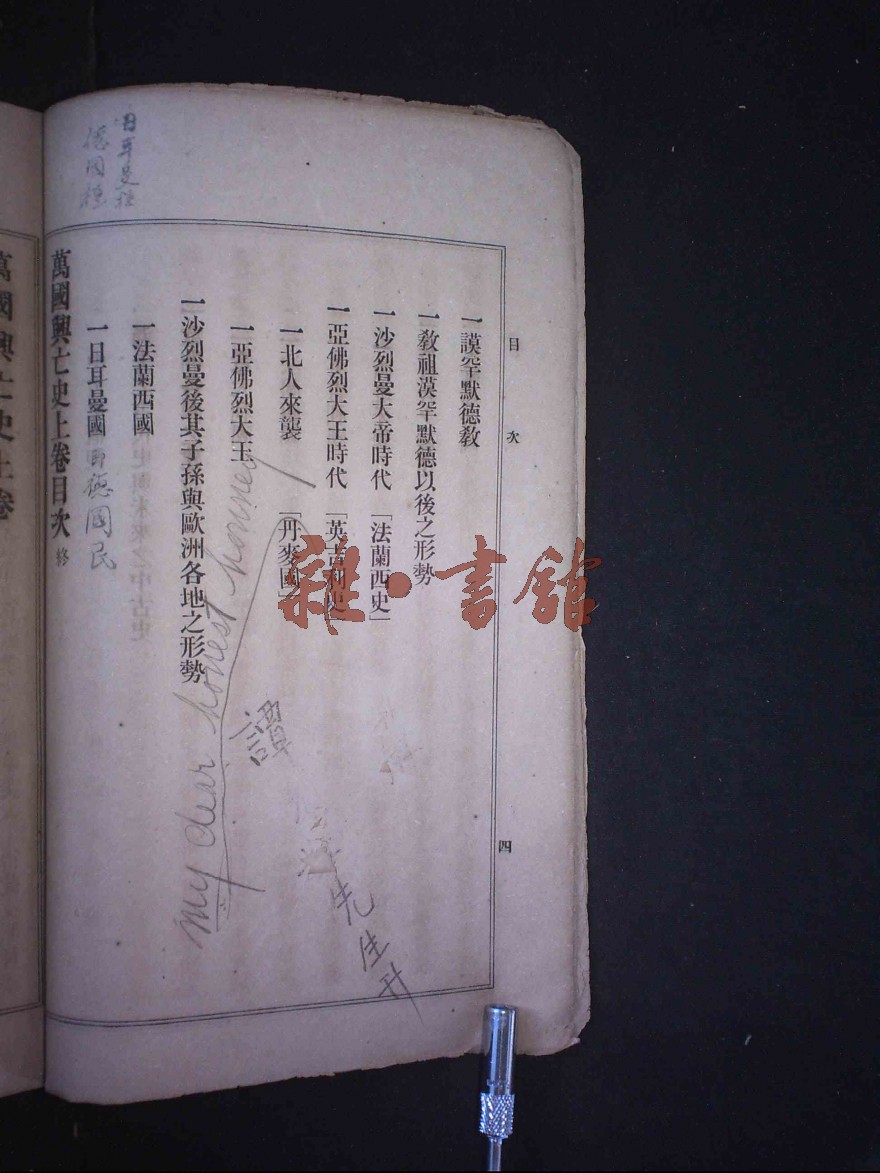 目次
四
一謨罕默德敎
一敎祖漠罕默德以後之形勢
一沙烈曼大帝時代「法蘭西史」
一亞佛烈大王時代「英吉利史」
一北人來襲「丹麥國」
一亞佛烈大王
一沙烈曼後其子孫與歐洲各地之形勢
一法蘭西國
一日耳曼國
德國民
萬國興亡史上卷目次終
日耳曼
德國
my dear honest
譚
先生
雜·書館
萬國興亡史上卷